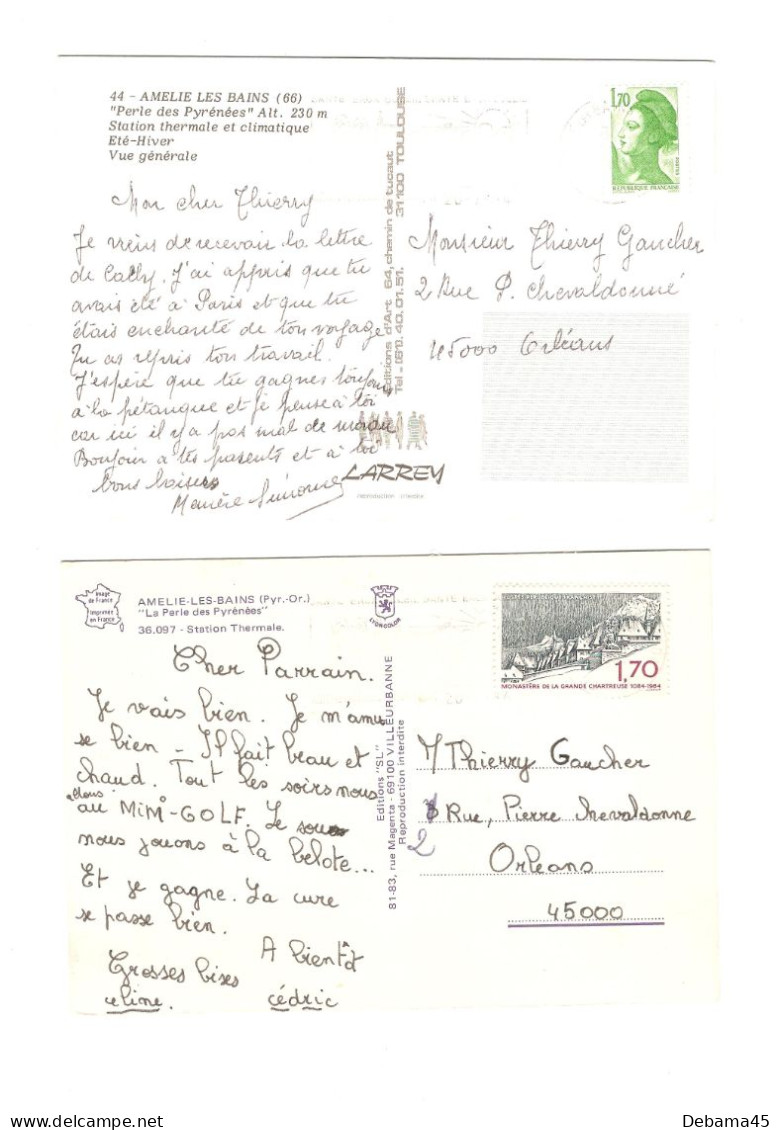 44 - AMELIE LES BAINS (66)
"Perle des Pyrénées" Alt. 230 m
Station thermale et climatique
Eté-Hiver
Vue générale
1,70
POSTES
REPUBLIQUE FRANÇAISE
Mon cher Thierry
Je viens de recevoir la lettre
de Cathy. J'ai appris que tu
avais été à Paris et que tu
étais enchanté de ton voyage
Tu as repris ton travail.
J'espère que tu gagnes toujours
à la pétanque et je pense à toi
car ici il y a pas mal de
Bonjour à tes parents et à toi
bons baisers
Simone
Editions d'Art 64, chemin de tucaut
Tel - (61). 40.01.51. 31100 TOULOUSE
LARREY
reproduction interdite
Monsieur Thierry Gaucher
2 Rue P. Chevaldonné
45000 Orléans
Image
de France
Imprimée
en France
AMELIE-LES-BAINS (Pyr.-Or.)
"La Perle des Pyrénées"
36.097 - Station Thermale.
LYONCOLOR
1,70
MONASTÈRE DE LA GRANDE CHARTREUSE 1084-1984
Cher Parrain.
Je vais bien. Je m'amu
se bien - Il fait beau et
chaud. Tout les soirs nous
allons
au MiMi-GOLF. Le
nous jouons à la belote...
Et je gagne. La cure
se passe bien.
A bientôt
Grosses bises
celine. cédric
Editions "SL"
81-83, rue Magenta - 69100 VILLEURBANNE
Reproduction interdite
M Thierry Gaucher
2 Rue, Pierre Chevaldonne
Orleans
45000
Delcampe.net
Debama45